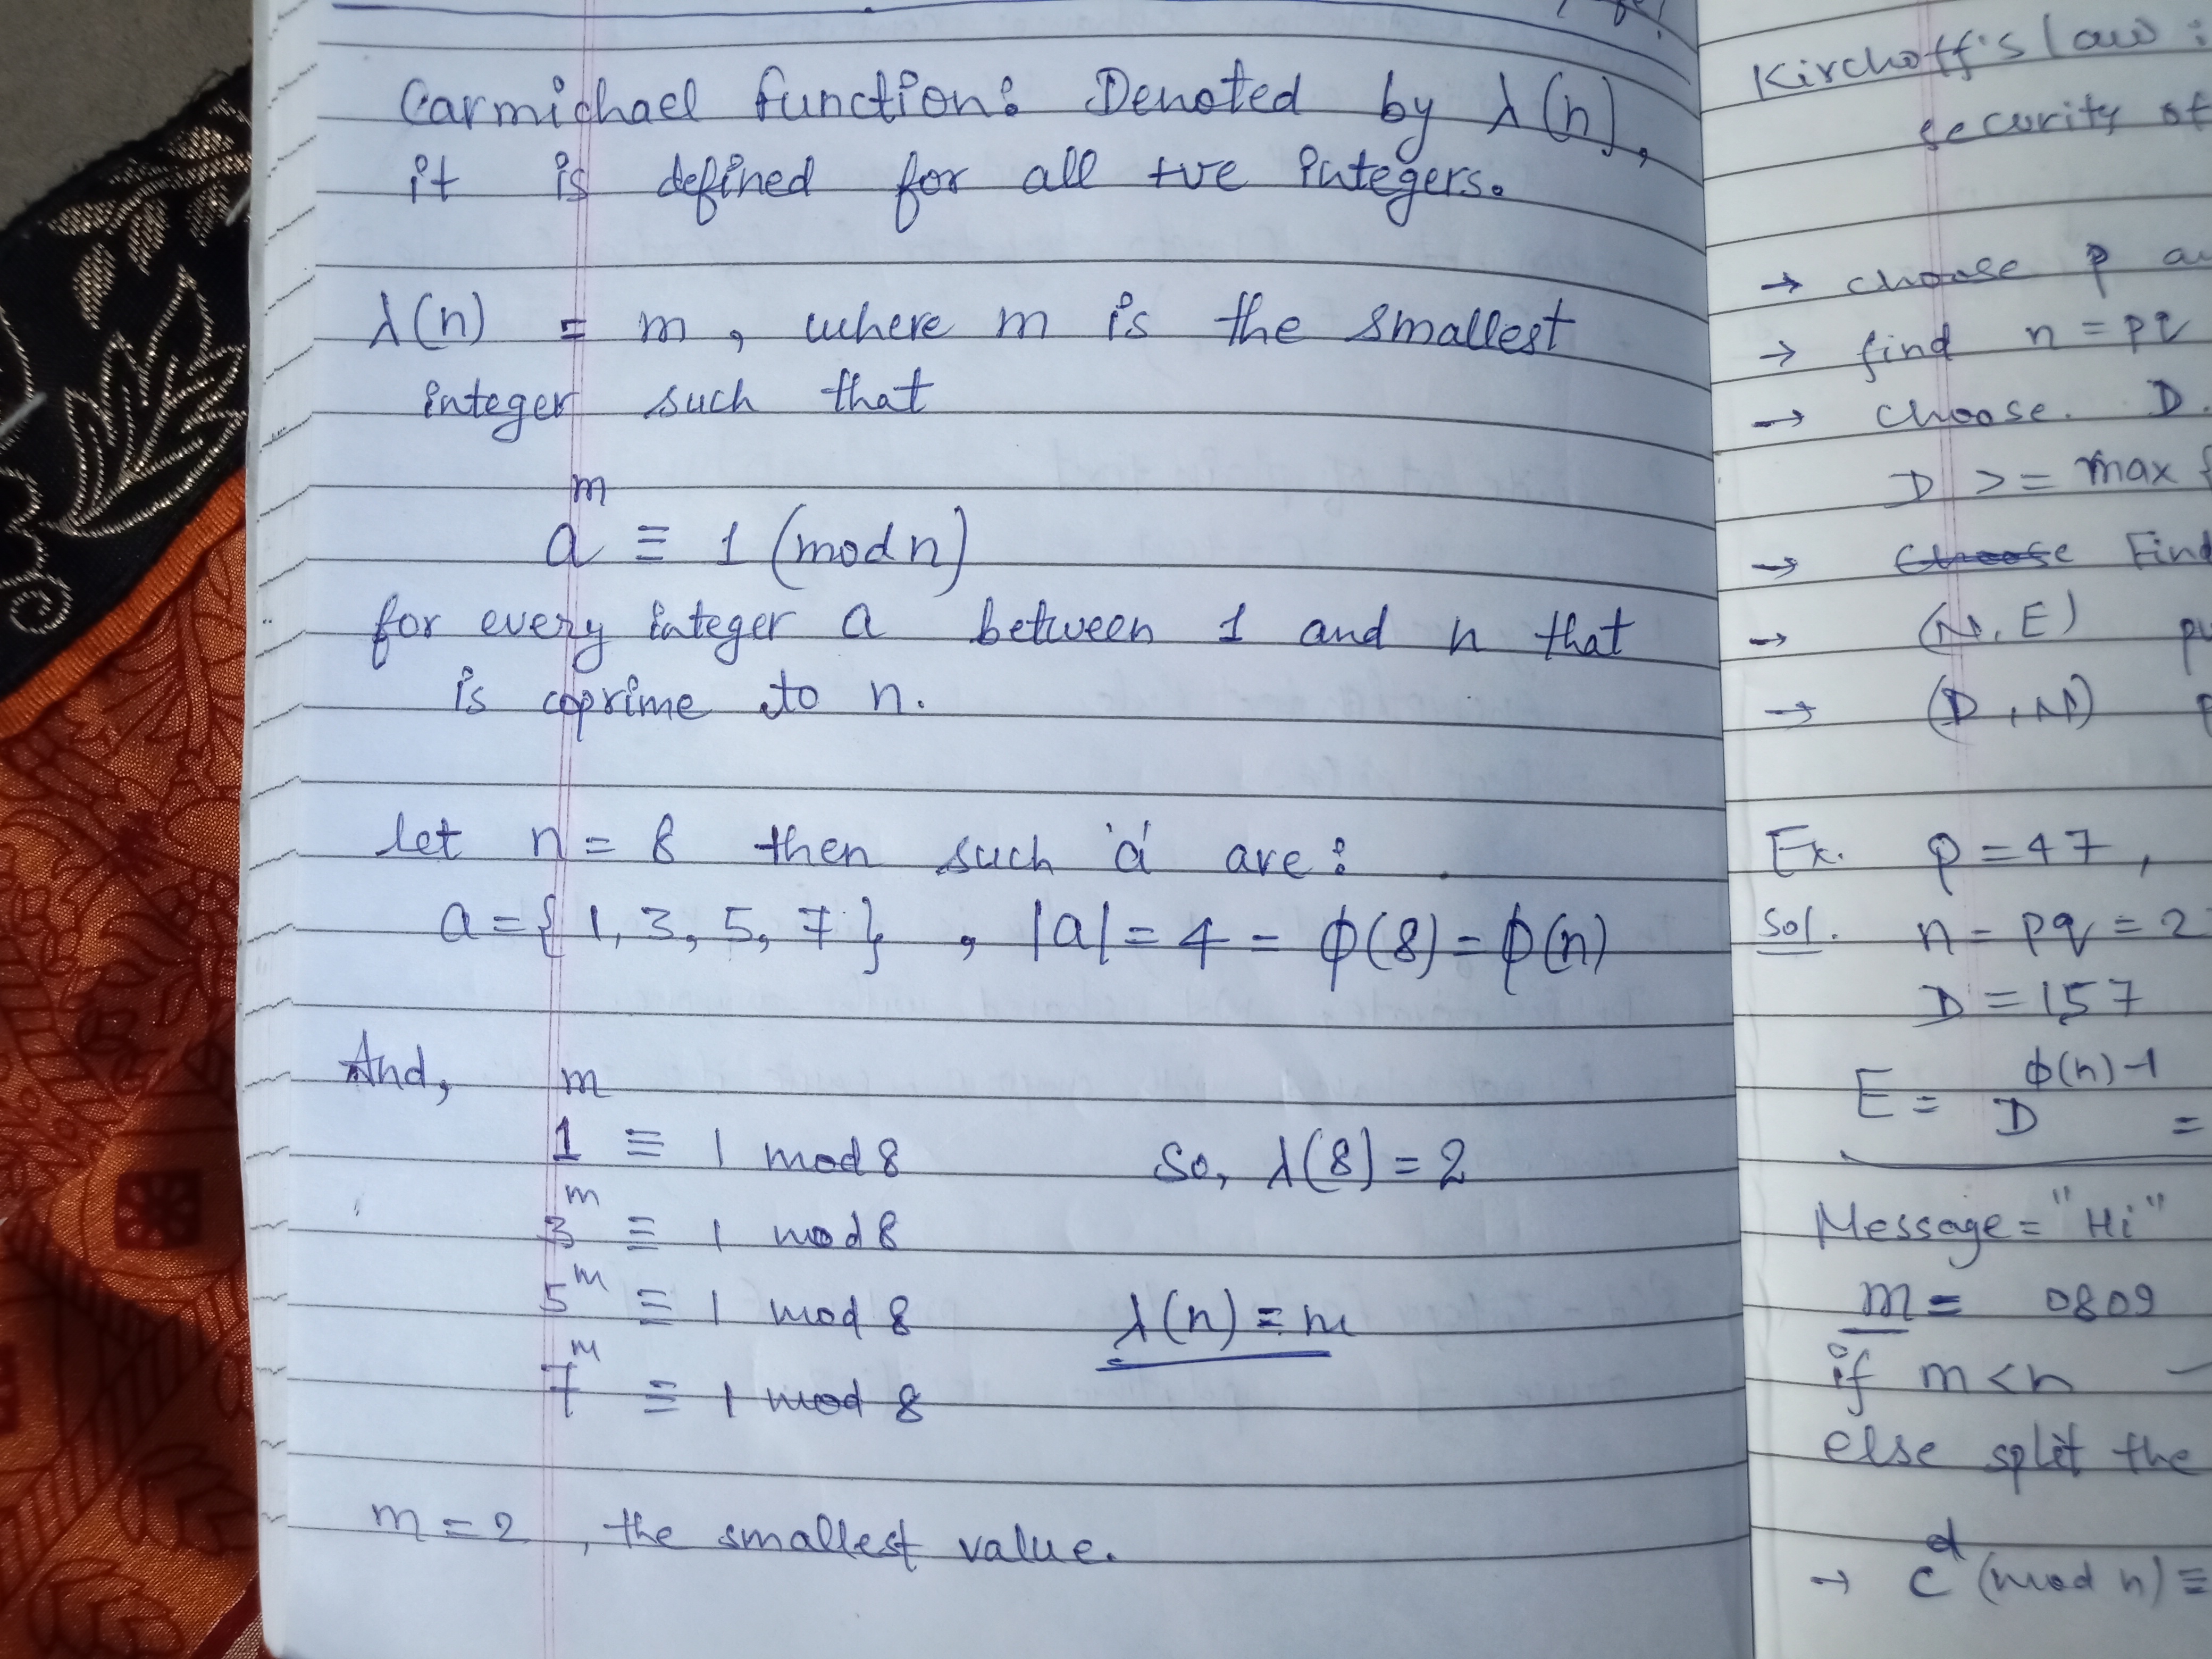 Carmichael function: Denoted by λ(n),
it is defined for all +ve integers.
λ(n) = m, where m is the smallest
integer such that
a^m ≡ 1 (mod n)
for every integer a between 1 and n that
is coprime to n.
let n = 8 then such 'a' are:
a = {1, 3, 5, 7}, |a| = 4 = ϕ(8) = ϕ(n)
And,
1^m ≡ 1 mod 8 So, λ(8) = 2
3^m ≡ 1 mod 8
5^m ≡ 1 mod 8 λ(n) = m
7^m ≡ 1 mod 8
m = 2, the smallest value.
Kirchoff's law:
security of
→ choose p
→ find n = pq
→ choose. D.
D >= max {
→ Choose Find
→ (N, E)
→ (D, N)
Ex. p = 47,
Sol. n = pq = 2
D = 157
E = D^ϕ(n)-1 =
Message = "Hi"
m = 0809
if m < n
else split the
→ c^d (mod n) ≡